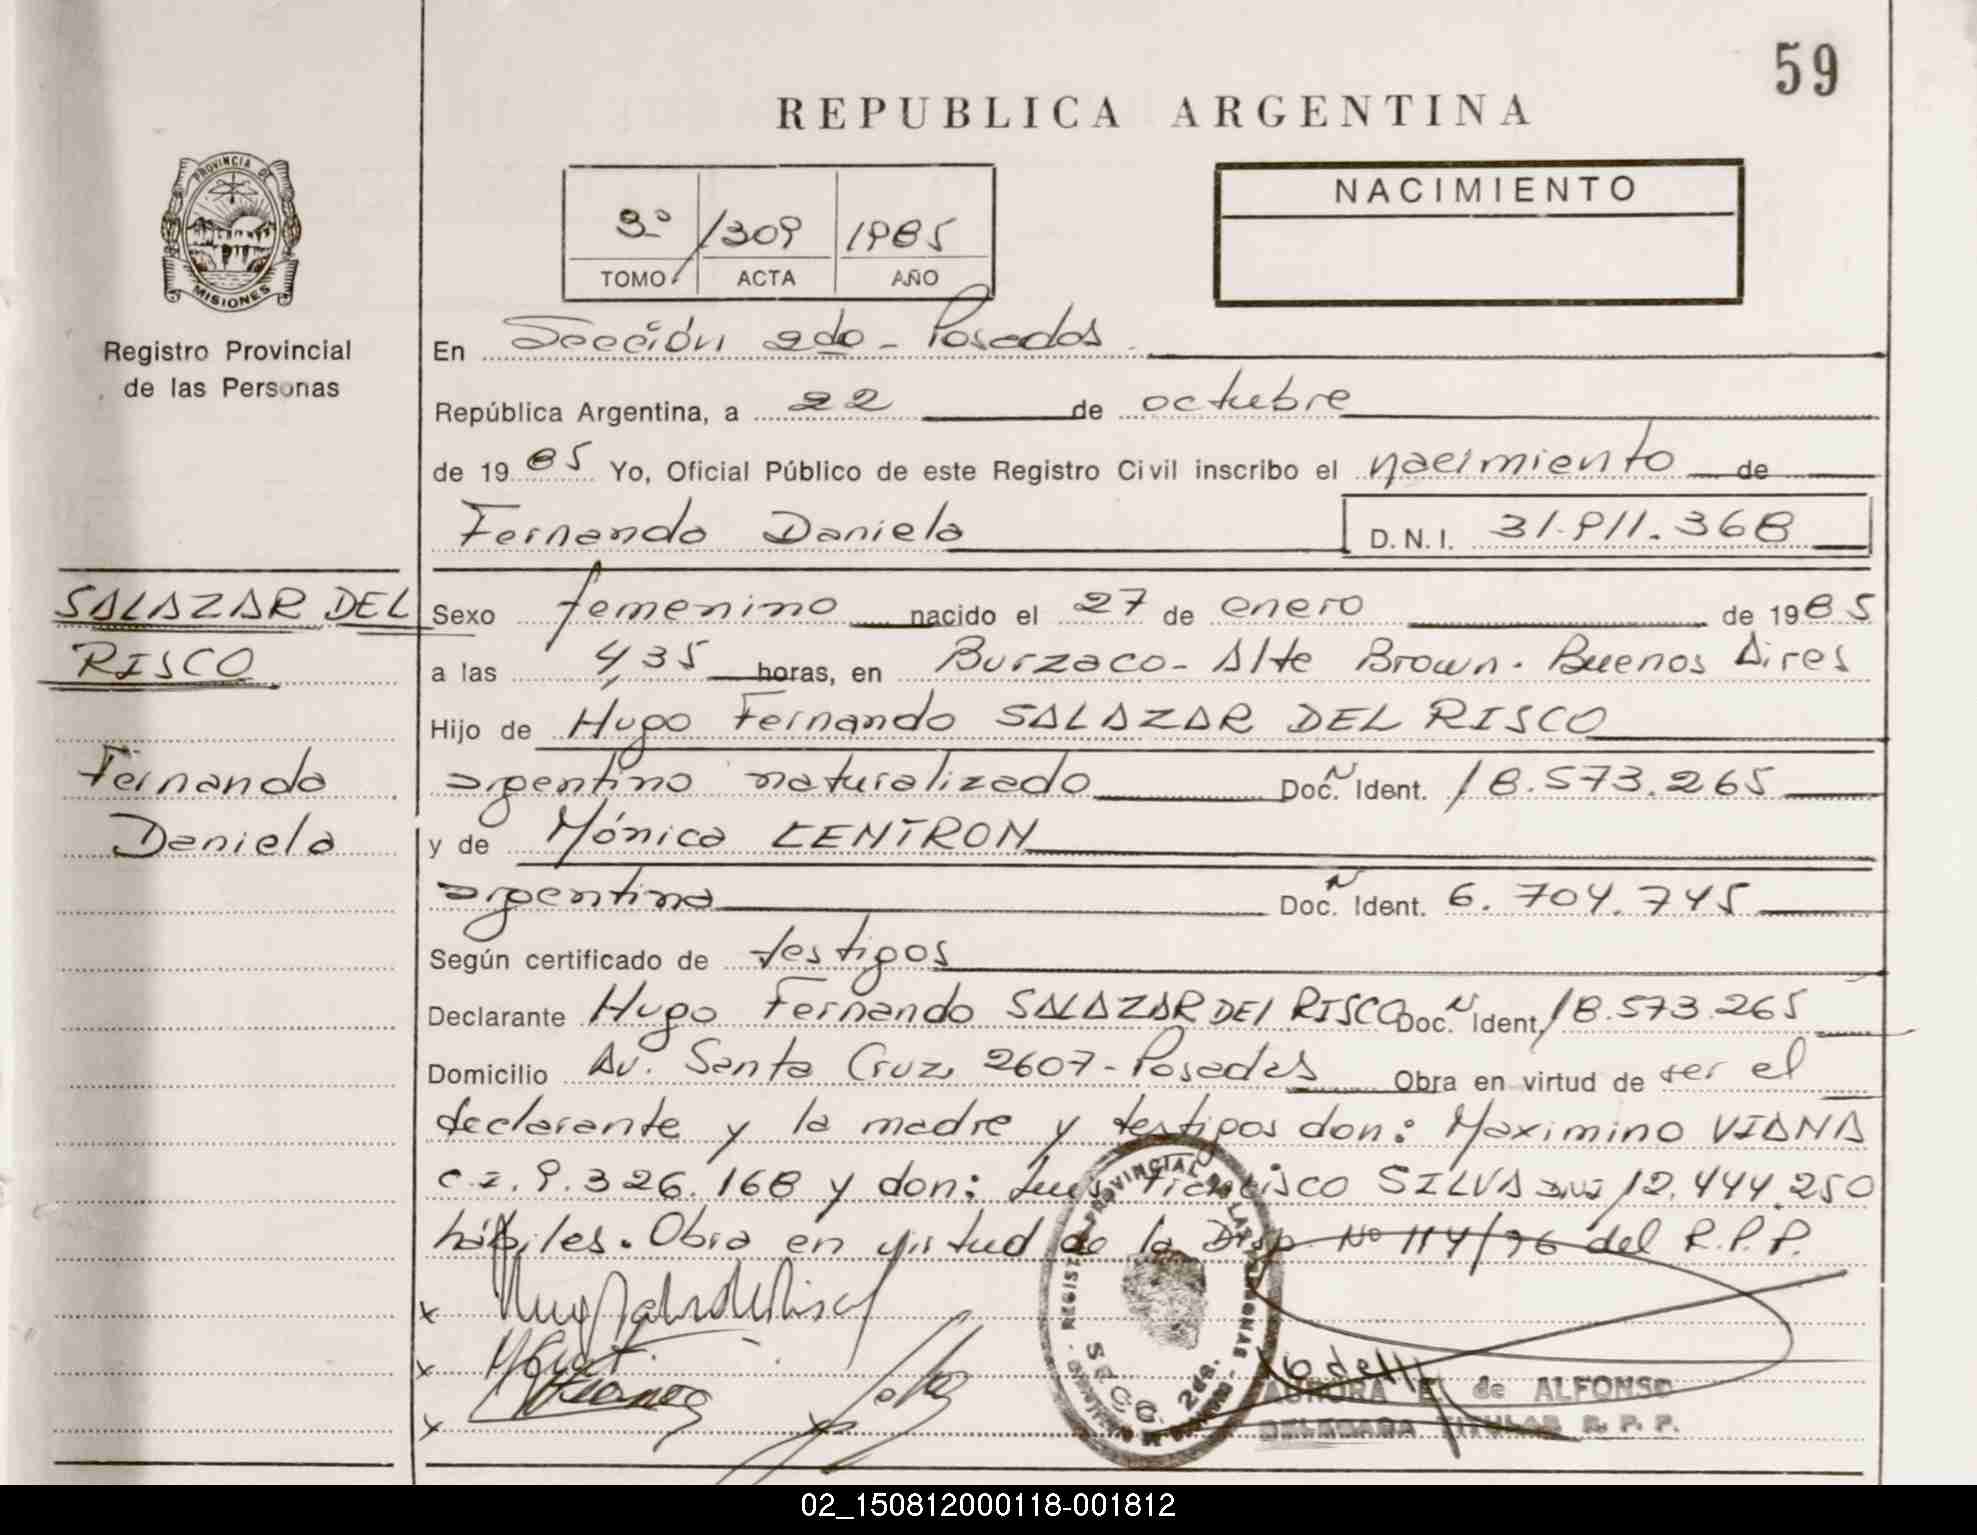 59
REPUBLICA ARGENTINA
PROVINCIA DE
MISIONES
Registro Provincial
de las Personas
3º 1309 1985
TOMO ACTA AÑO
NACIMIENTO
En Sección 2da - Posadas
República Argentina, a 22 de octubre
de 1985 Yo, Oficial Público de este Registro Civil inscribo el nacimiento de
Fernanda Daniela D.N.I. 31.911.368
SALAZAR DEL
RISCO
Fernanda
Daniela
Sexo femenino nacido el 27 de enero de 1985
a las 4,35 horas, en Burzaco - Alte Brown - Buenos Aires
Hijo de Hugo Fernando SALAZAR DEL RISCO
argentino naturalizado Doc. N Ident. 18.573.265
y de Mónica
argentina Doc. N Ident. 6.704.745
Según certificado de testigos
Declarante Hugo Fernando SALAZAR DEL RISCO Doc. N Ident. 18.573.265
Domicilio Av. Santa Cruz 2607 - Posadas Obra en virtud de ser el
declarante y la madre y testigos don: Maximino VIANA
c.i. 9.326.168 y don: Luis Francisco SILVA DNI 12.444.250
hábiles. Obra en virtud de la Disp. Nº 114/76 del R.P.P.
x
x
x
REGISTRO PROVINCIAL DE LAS PERSONAS
SECC. 2da.
AURORA E. de ALFONSO
DELEGADA TITULAR R. P. P.
02_150812000118-001812